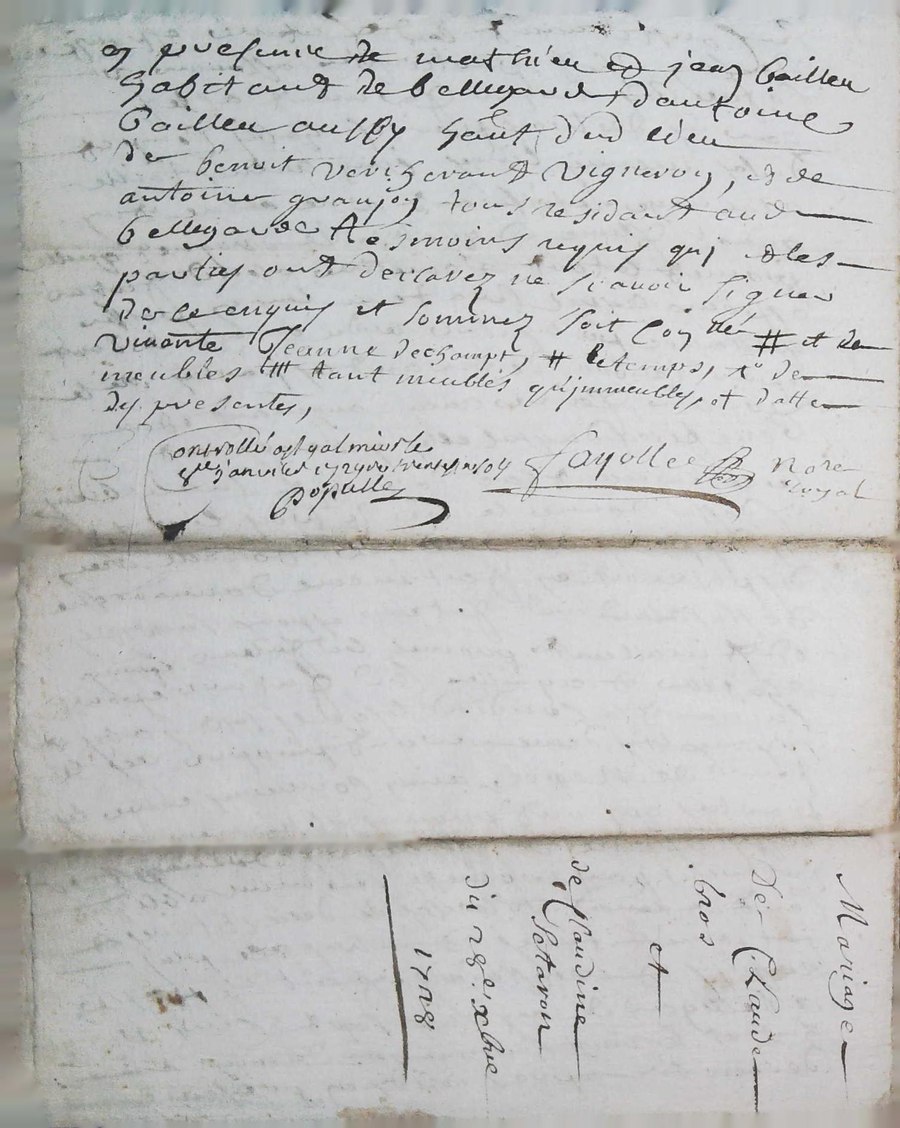 en presence de mathieu et jean bailleu
habitants de bellegarde, d'antoine
bailleu aussy hant dud lieu
de benoit vericherand vigneron, et de
antoine granjon tous residant aud
bellegarde tesmoins requis qui et les
parties ont declarez ne scavoir signer
de ce enquis et sommez soit
vivante Jeanne dechampt, # le temps, # et de
meubles # tant meubles qu'immeubles, et datte
des presentes,
Controllé a st galmier le
janvier 1729
Populle
Fayolle nore
royal
Mariage
De Claude
bros
et
de Claudine
Sataron
du 28e xbre
1728